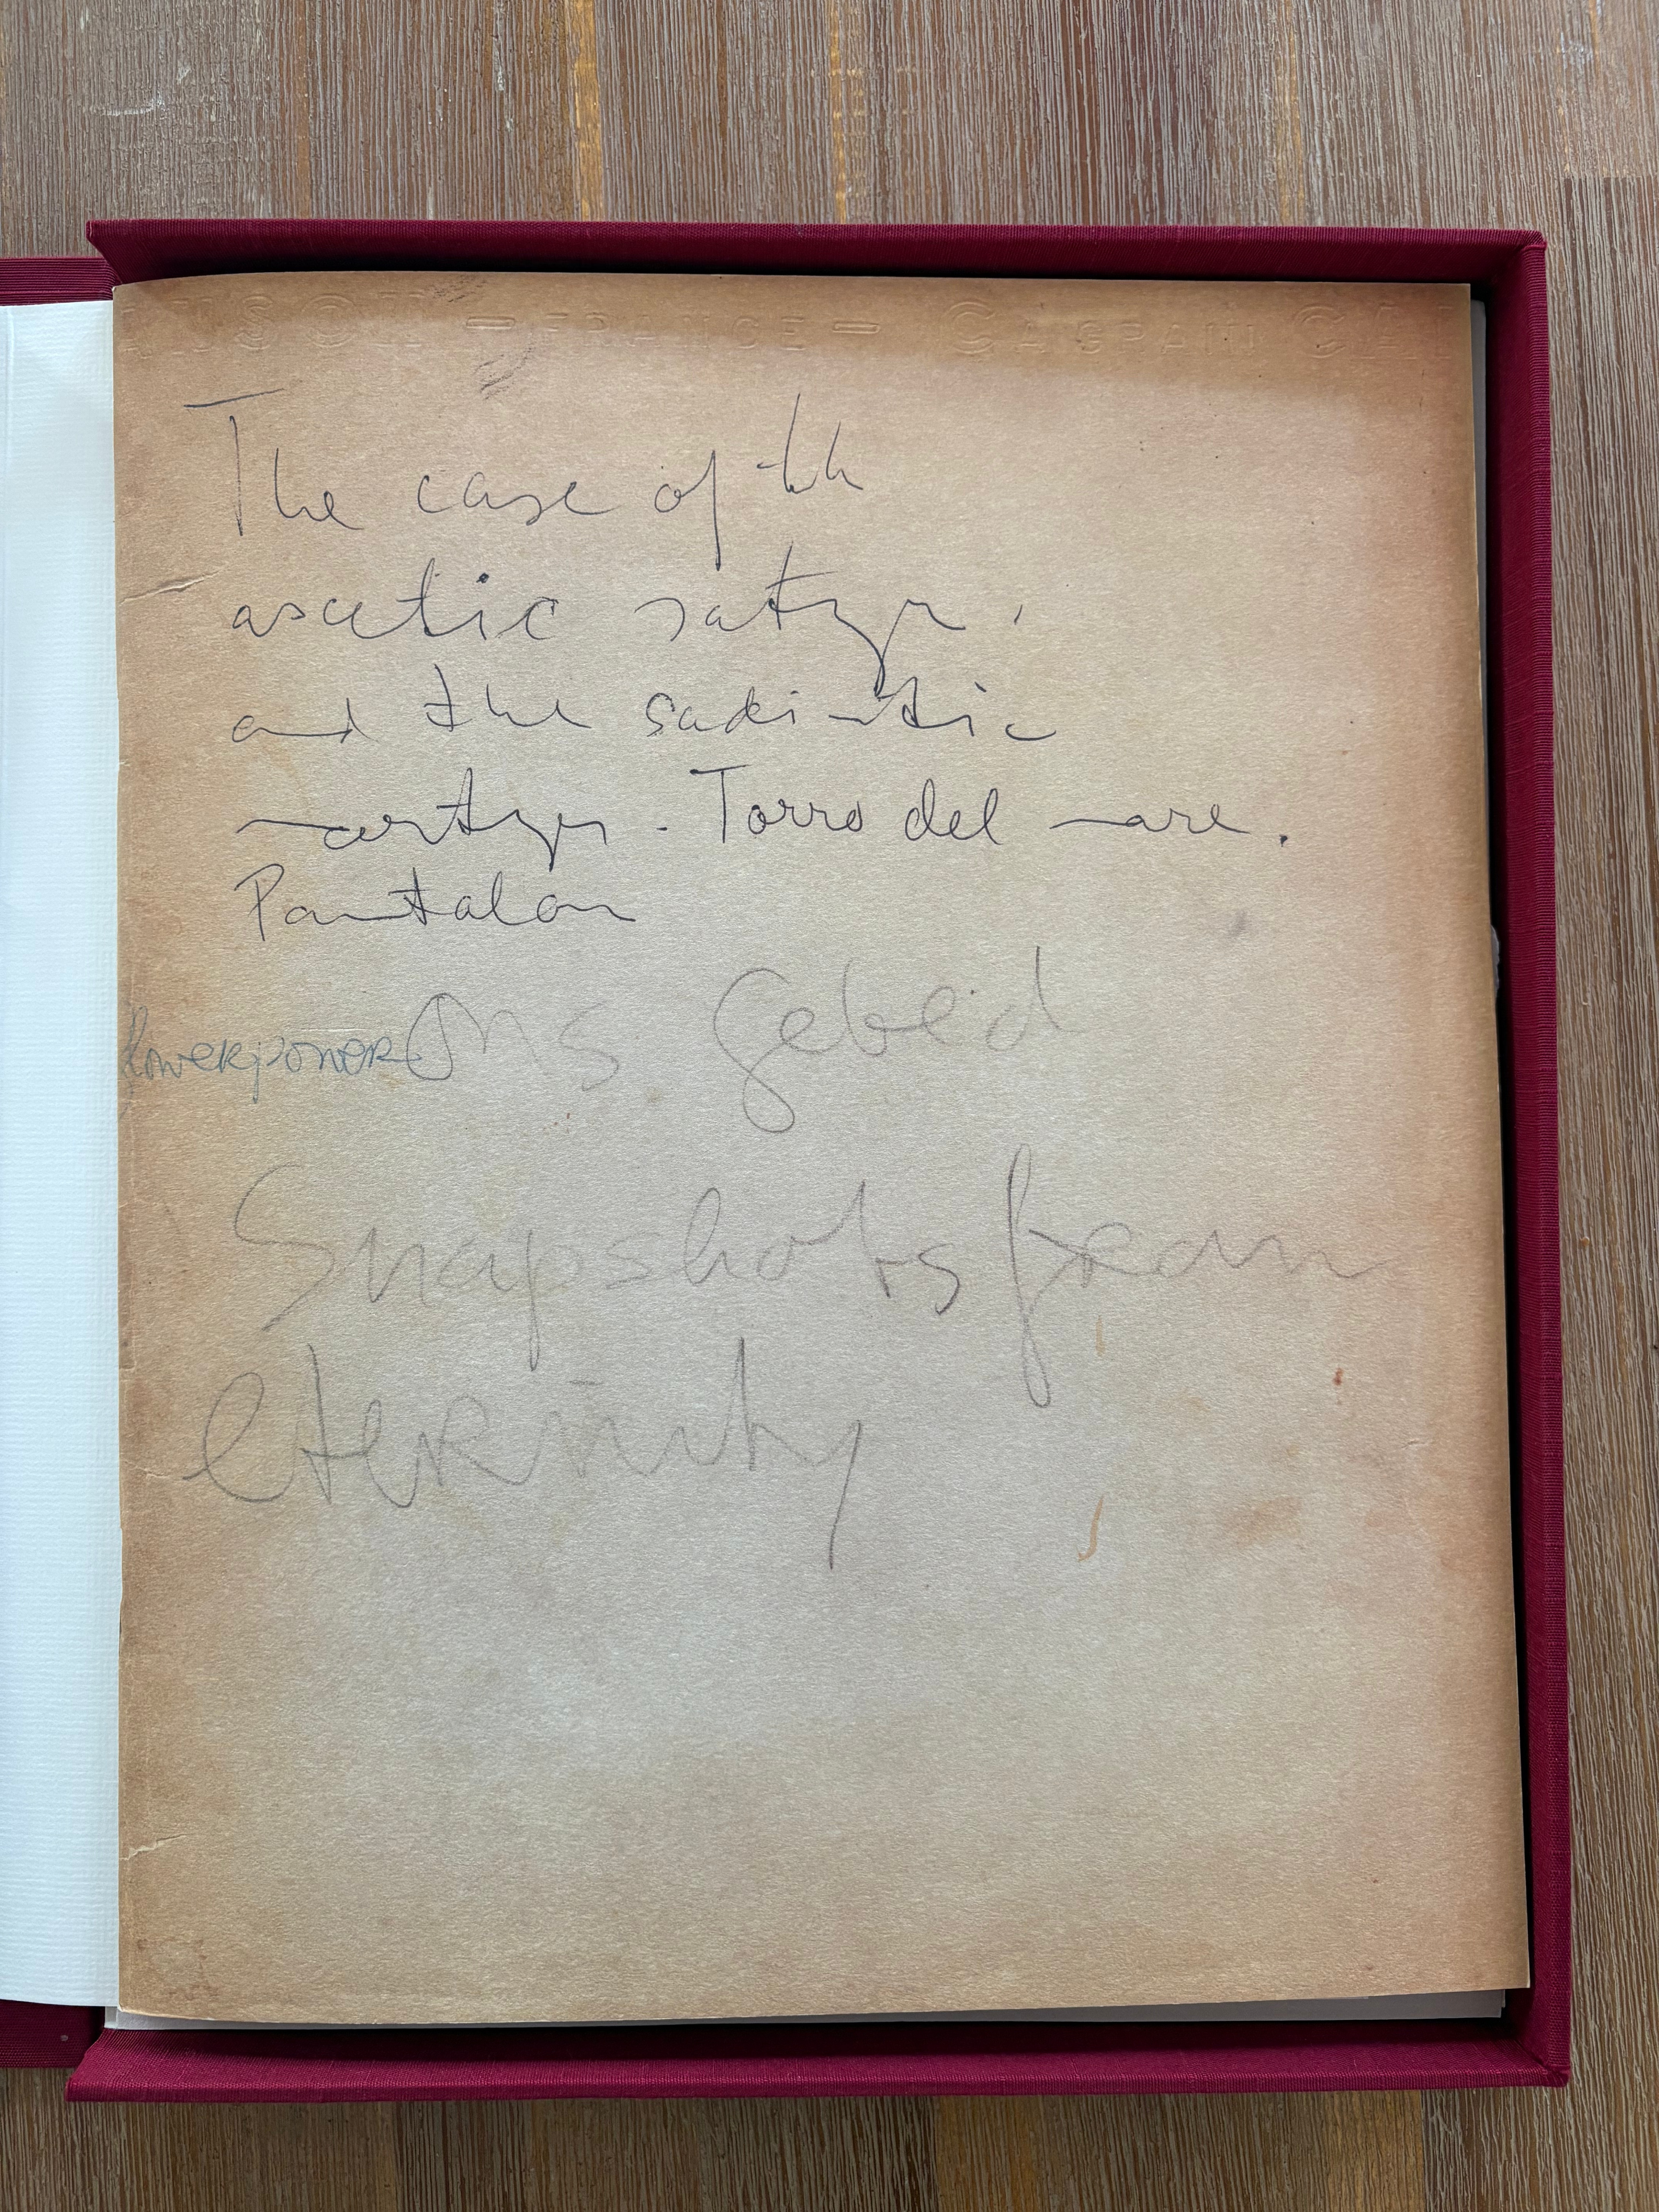 NSON - FRANCE - C A GRAIN CAN
The case of th
ascetic satyr,
and the sadistic
martyr. Torro del mare.
Pantalon
flowerpower Ons Gebed
Snapshots from
eternity